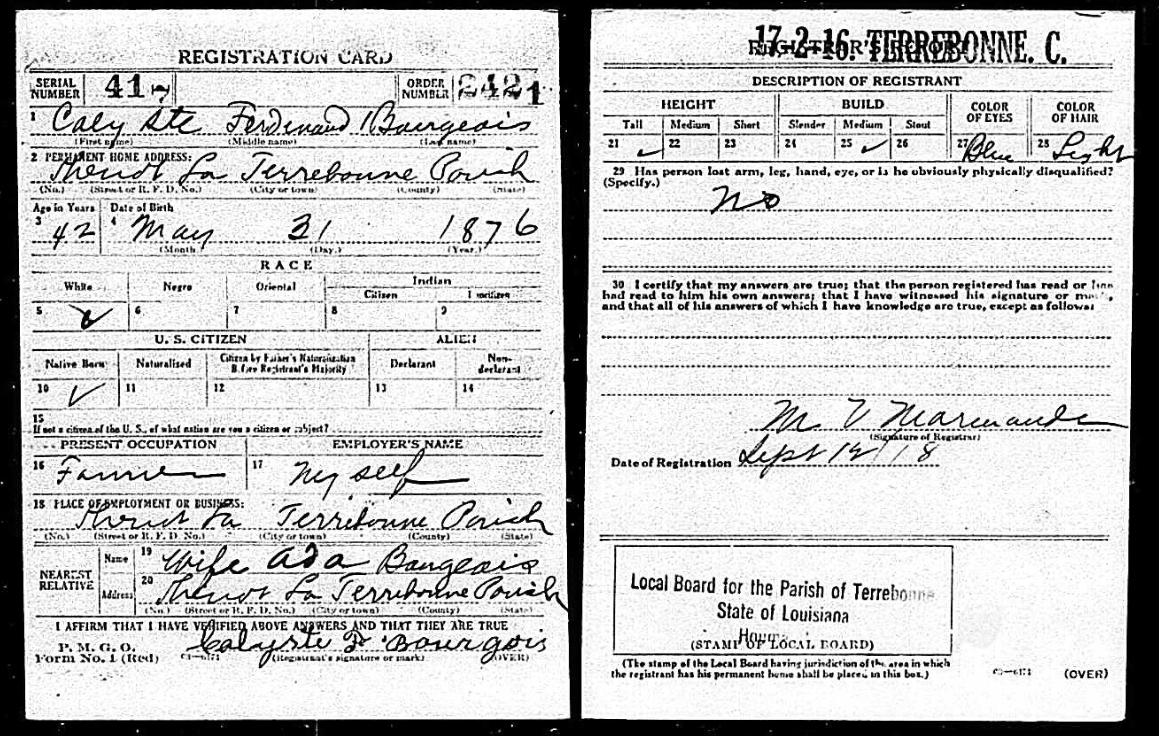 REGISTRATION CARD
SERIAL NUMBER 417 ORDER NUMBER 2421
1 Calyste Ferdinand Bourgeois
(First name) (Middle name) (Last name)
2 PERMANENT HOME ADDRESS:
La Terrebonne Parish
(No.) (Street or R. F. D. No.) (City or town) (County) (State)
Age in Years Date of Birth
3 42 4 May 31 1876
(Month) (Day.) (Year.)
RACE
White Negro Oriental Indian
Citizen
5 ✓ 6 7 8 9
U. S. CITIZEN ALIEN
Native Born Naturalized Citizen by Father's Naturalization Before Registrant's Majority Declarant Non-declarant
10 ✓ 11 12 13 14
15
If not a citizen of the U. S., of what nation are you a citizen or subject?
PRESENT OCCUPATION EMPLOYER'S NAME
16 Farmer 17 My self
18 PLACE OF EMPLOYMENT OR BUSINESS:
La Terrebonne Parish
(No.) (Street or R. F. D. No.) (City or town) (County) (State)
NEAREST RELATIVE Name 19 Wife Ada Bourgeois
Address 20 La Terrebonne Parish
(No.) (Street or R. F. D. No.) (City or town) (County) (State)
I AFFIRM THAT I HAVE VERIFIED ABOVE ANSWERS AND THAT THEY ARE TRUE
P. M. G. O.
Form No. 1 (Red) Calyste F Bourgois
(Registrant's signature or mark) (OVER)
17-2-16. TERREBONNE. C.
REGISTRAR'S REPORT
DESCRIPTION OF REGISTRANT
HEIGHT BUILD COLOR OF EYES COLOR OF HAIR
Tall Medium Short Slender Medium Stout
21 ✓ 22 23 24 25 ✓ 26 27 Blue 28 Light
29 Has person lost arm, leg, hand, eye, or is he obviously physically disqualified?
(Specify.)
No
30 I certify that my answers are true; that the person registered has read or has
had read to him his own answers; that I have witnessed his signature or mark,
and that all of his answers of which I have knowledge are true, except as follows:
M V Marmande
(Signature of Registrar)
Date of Registration Sept 12 / 18
Local Board for the Parish of Terrebonne
State of Louisiana
Houma
(STAMP OF LOCAL BOARD)
(The stamp of the Local Board having jurisdiction of the area in which
the registrant has his permanent home shall be placed in this box.)
(OVER)